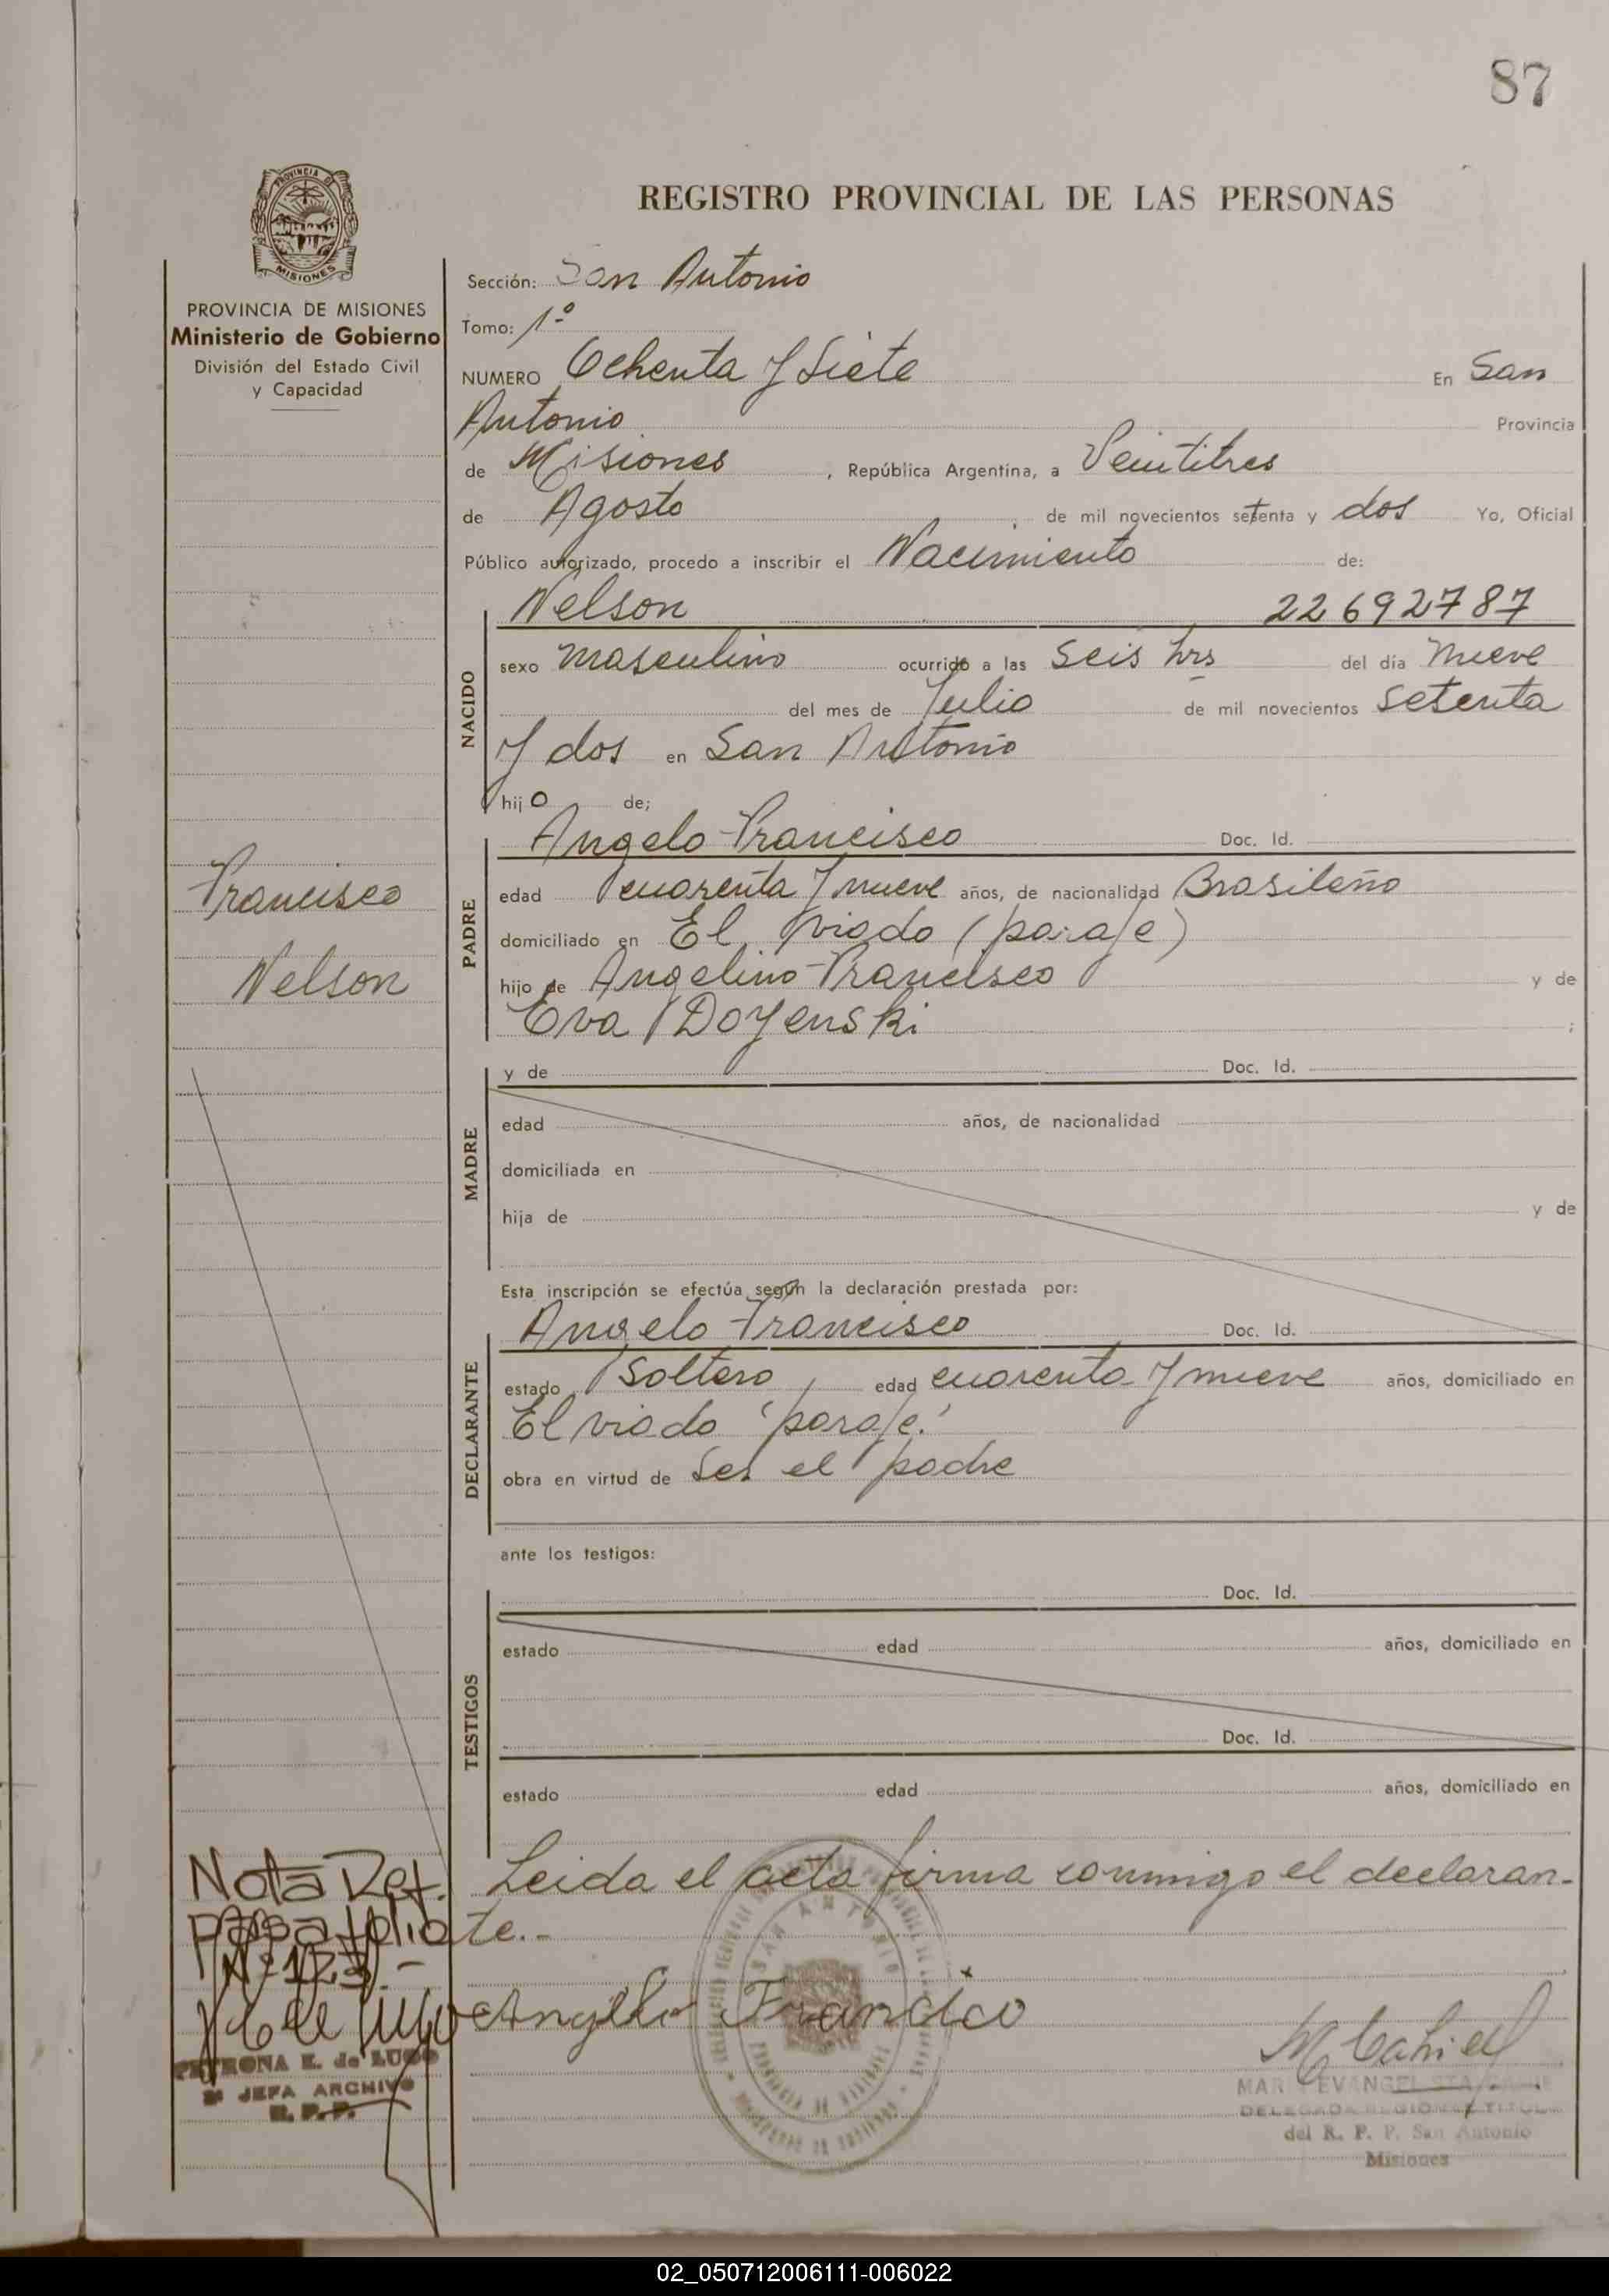 87
PROVINCIA DE
MISIONES
PROVINCIA DE MISIONES
Ministerio de Gobierno
División del Estado Civil
y Capacidad
REGISTRO PROVINCIAL DE LAS PERSONAS
Sección: San Antonio
Tomo: 1º
NUMERO Ochenta y Siete En San
Antonio Provincia
de Misiones , República Argentina, a Veintitres
de Agosto de mil novecientos setenta y dos Yo, Oficial
Público autorizado, procedo a inscribir el Nacimiento de:
Nelson 22692787
NACIDO
sexo masculino ocurrido a las seis hrs del día nueve
del mes de Julio de mil novecientos setenta
y dos en San Antonio
hijo de;
Angelo Francisco Doc. Id.
PADRE
edad cuarenta y nueve años, de nacionalidad Brasileño
domiciliado en El viado (paraje)
hijo de Angelino Francisco y de
Eva Doyenski ;
Francisco
Nelson
MADRE
y de Doc. Id.
edad años, de nacionalidad
domiciliada en
hija de y de
Esta inscripción se efectúa según la declaración prestada por:
Angelo Francisco Doc. Id.
DECLARANTE
estado Soltero, edad cuarenta y nueve años, domiciliado en
El viado "paraje"
obra en virtud de ser el padre
ante los testigos:
TESTIGOS
Doc. Id.
estado edad años, domiciliado en
Doc. Id.
estado edad años, domiciliado en
Leida el acta firma conmigo el declaran-
te.-
Nota Ref.
Pasa folio
Nº 123.-
Angelo Francico
PETRONA E. de LUGO
JEFA ARCHIVO
R. P. P.
SAN ANTONIO
PROVINCIA DE MISIONES
M Cahiel
DELEGADA REGIONAL TITUL
del R. P. P. San Antonio
Misiones
02_050712006111-006022